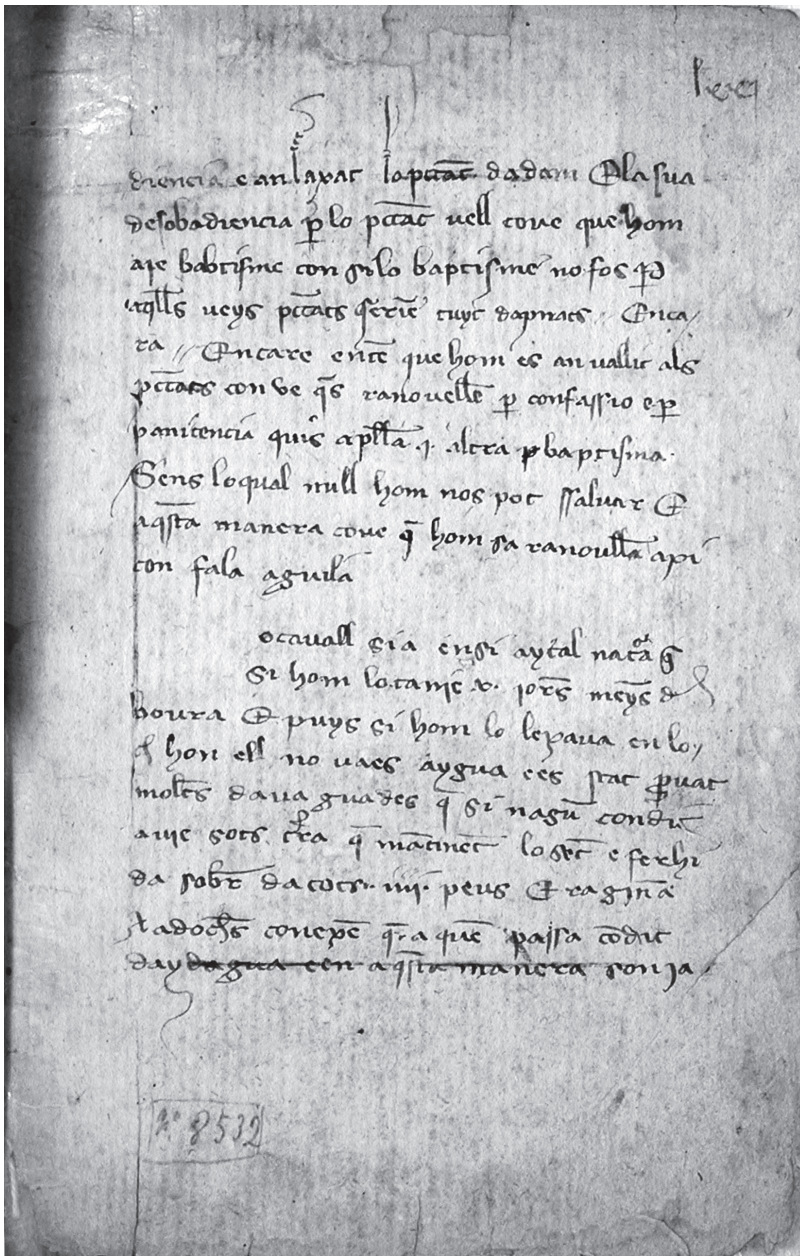 lxxj
diencia e an laxat lo pccat dadam E la sua
desobadiencia p̱ lo pccat vell cove que hom
aie babtisme con si lo baptisme no fos p̱
aq̄lls veys pccats serie tuyt dapnats Enca
ra // Encare ente que hom es anvallit als
pccats conve q̄s ranovelle p̱ confassio e p̱
panitencia quis apllā .j. altra p̱ baptisma.
Sens lo qual null hom nos pot ssalvar E
aq̄sta manera cove q̄ hom sa ranovlla axi
con fa la aguila
o cavall si a en si aytal natā
Si hom lo tanie x. iorns meys d
boura E puys si hom lo lexava en lo
hon ell no vaes aygua ees stat p̱vat
moltes davaguades q̄ si nagū condit
avie sots tr̄a q̄ mātinēt lo sent e ferhi
da sobr dacots .iiij. peus E raginā
A adochs conexē q̄ a quē passa cōdit
day dagua e en aq̄sta manera son ja
Nº 8532